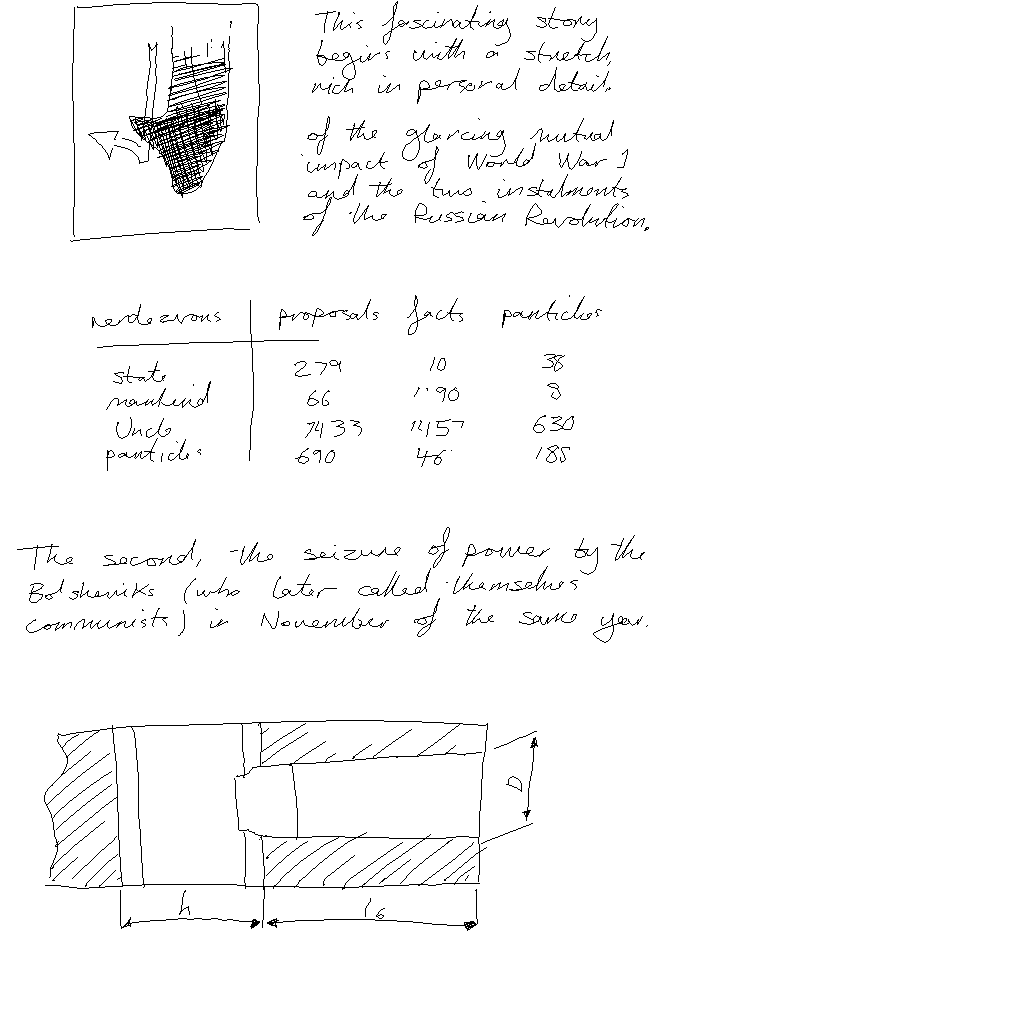 This fascinating story
begins with a stretch,
rich in personal detail.
of the glancing mutual
impact of World War I
and the two instalments
of the Russian Revolution.
rendezvous proposals facts particles
state 279 10 38
mankind 66 1190 8
Uncle 7433 630
particles 690 46 185
The second, the seizure of power by the
Bolsheviks (who later called themselves
communists) in November of the same year.
D
h
l6